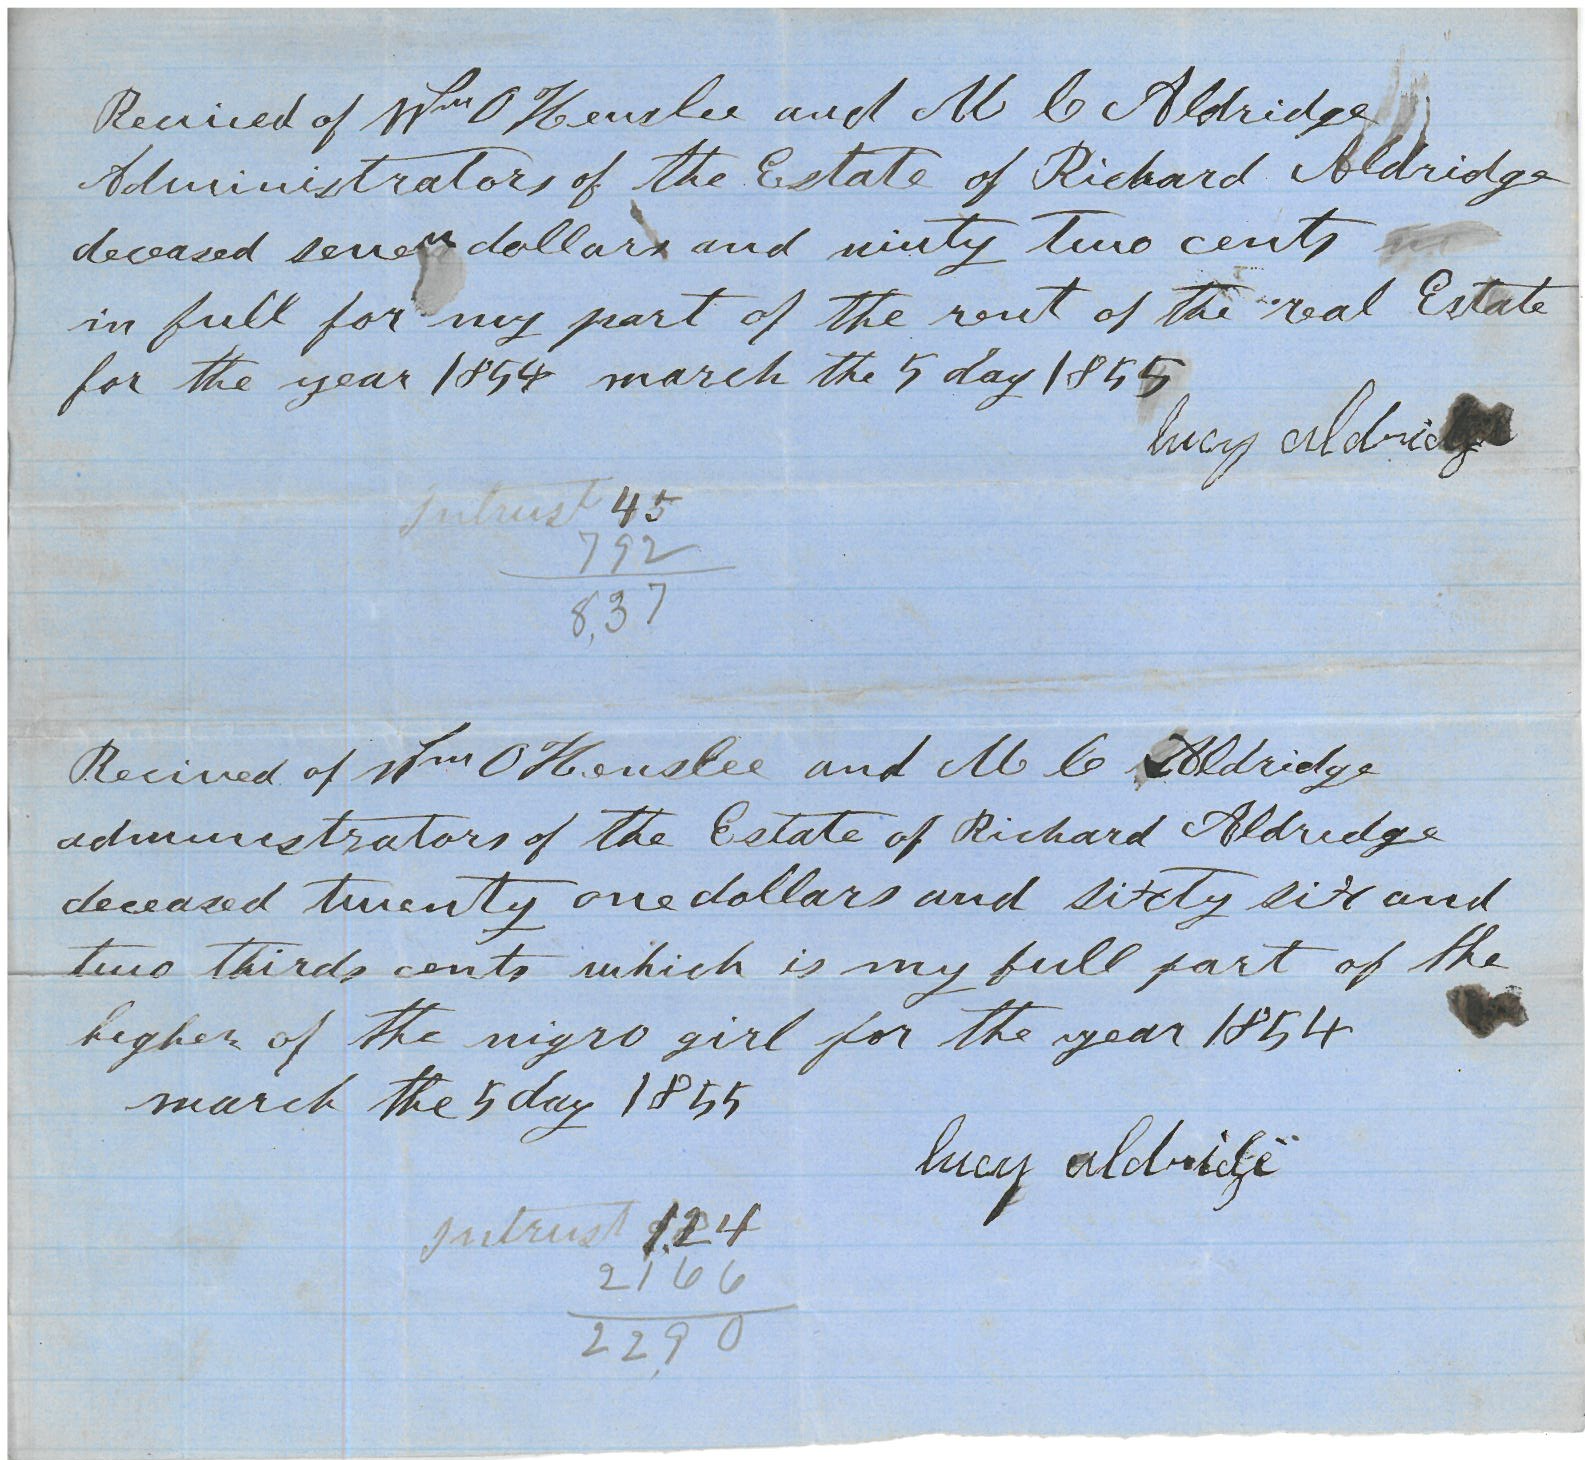 Recived of Wm O Henslee and M C Aldridge
Administrators of the Estate of Richard Aldridge
deceased seven dollars and ninty two cents
in full for my part of the rent of the real Estate
for the year 1854 march the 5 day 1855
lucy aldridge
Intrust 45
792
8,37
Recived of Wm O Henslee and M C Aldridge
administrators of the Estate of Richard Aldridge
deceased twenty one dollars and sixty six and
two thirds cents which is my full part of the
higher of the nigro girl for the year 1854
march the 5 day 1855
lucy aldridge
Intrust 1.24
2166
22,90